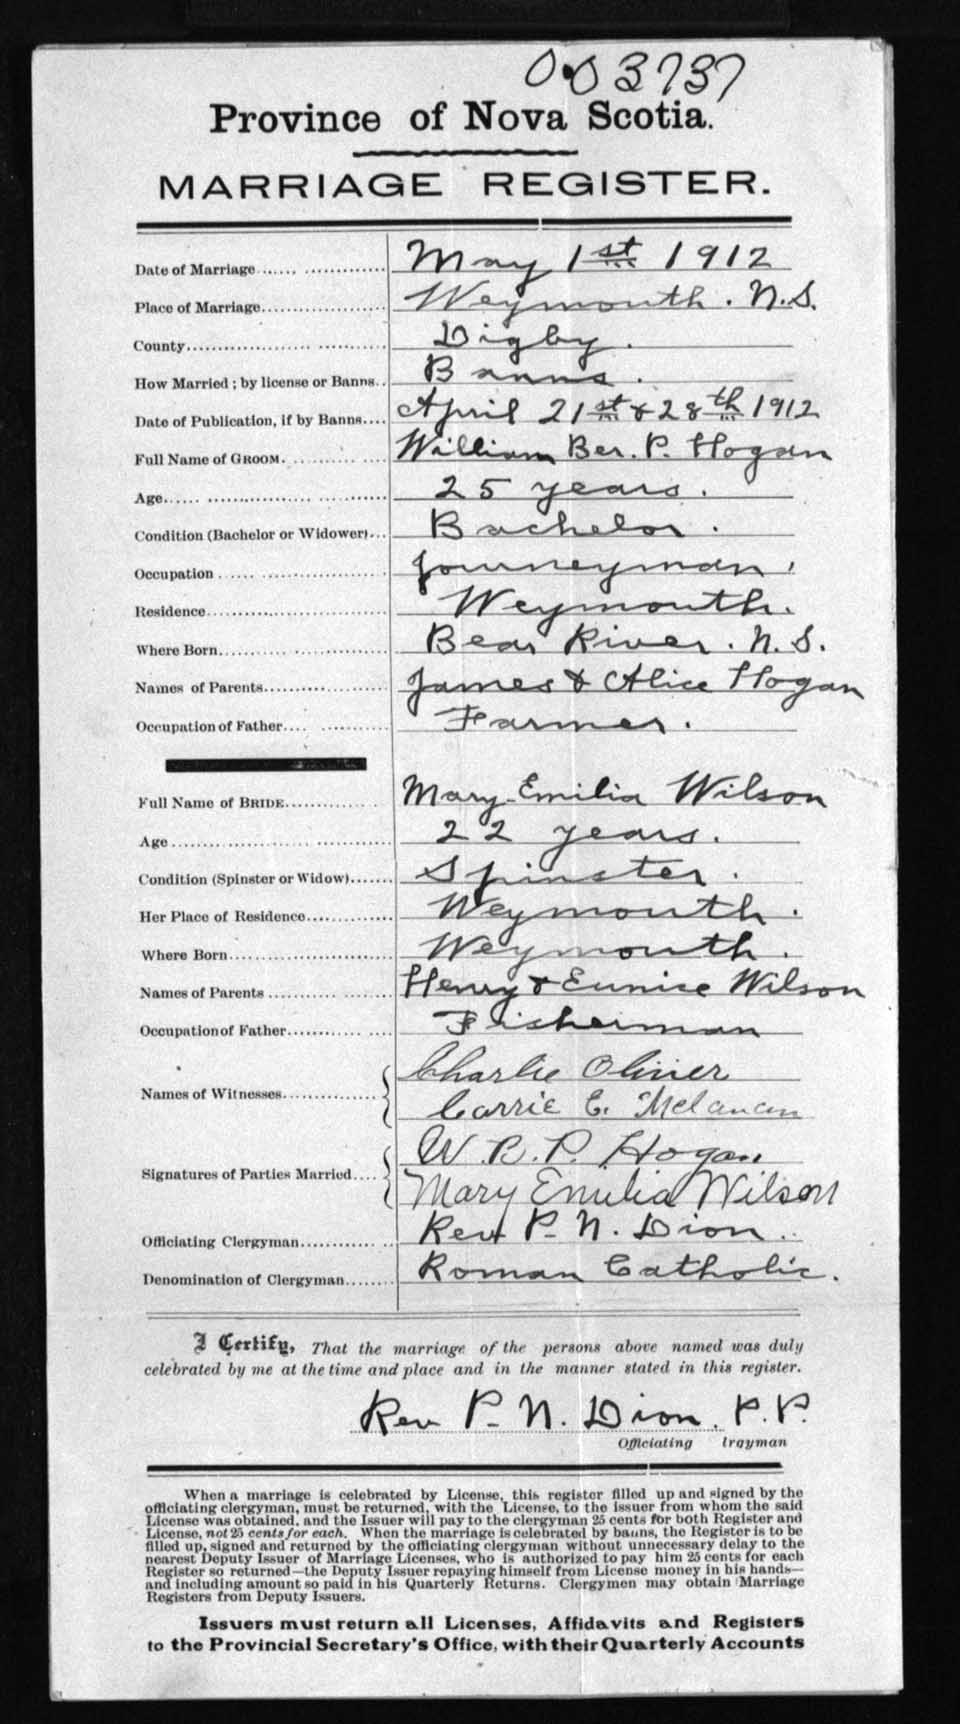 003737
Province of Nova Scotia.
MARRIAGE REGISTER.
Date of Marriage May 1st 1912
Place of Marriage Weymouth. N.S.
County Digby.
How Married; by license or Banns Banns.
Date of Publication, if by Banns April 21st & 28th 1912
Full Name of GROOM William Ber. P. Hogan
Age 25 years.
Condition (Bachelor or Widower) Bachelor.
Occupation Journeyman.
Residence Weymouth.
Where Born Bear River. N.S.
Names of Parents James & Alice Hogan
Occupation of Father Farmer.
Full Name of BRIDE Mary Emilia Wilson
Age 22 years.
Condition (Spinster or Widow) Spinster.
Her Place of Residence Weymouth.
Where Born Weymouth.
Names of Parents Henry & Eunice Wilson
Occupation of Father Fisherman
Charlie Oliver
Names of Witnesses
Carrie E. Melancon
W. B. P. Hogan
Signatures of Parties Married
Mary Emilia Wilson
Officiating Clergyman Rev P. N. Dion.
Denomination of Clergyman Roman Catholic.
I Certify, That the marriage of the persons above named was duly
celebrated by me at the time and place and in the manner stated in this register.
Rev P. N. Dion. P.P.
Officiating lrgyman
When a marriage is celebrated by License, this register filled up and signed by the
officiating clergyman, must be returned, with the License, to the issuer from whom the said
License was obtained, and the Issuer will pay to the clergyman 25 cents for both Register and
License, not 25 cents for each. When the marriage is celebrated by banns, the Register is to be
filled up, signed and returned by the officiating clergyman without unnecessary delay to the
nearest Deputy Issuer of Marriage Licenses, who is authorized to pay him 25 cents for each
Register so returned—the Deputy Issuer repaying himself from License money in his hands—
and including amount so paid in his Quarterly Returns. Clergymen may obtain Marriage
Registers from Deputy Issuers.
Issuers must return all Licenses, Affidavits and Registers
to the Provincial Secretary's Office, with their Quarterly Accounts